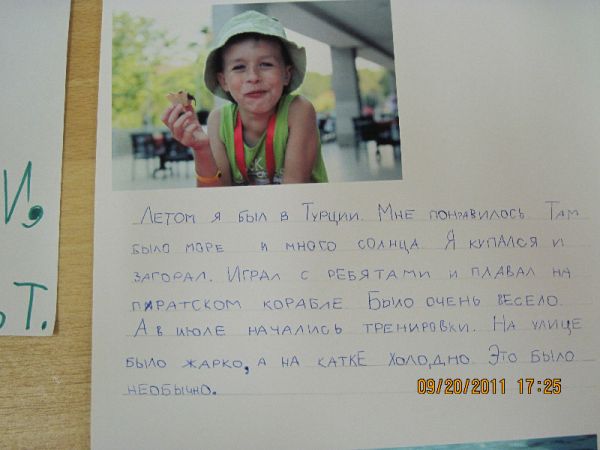 И,
Т.
Летом я был в Турции. Мне понравилось Там
было море и много солнца. Я купался и
загорал. Играл с ребятами и плавал на
пиратском корабле. Было очень весело.
А в июле начались тренировки. На улице
было жарко, а на катке холодно. Это было
необычно.
09/20/2011 17:25